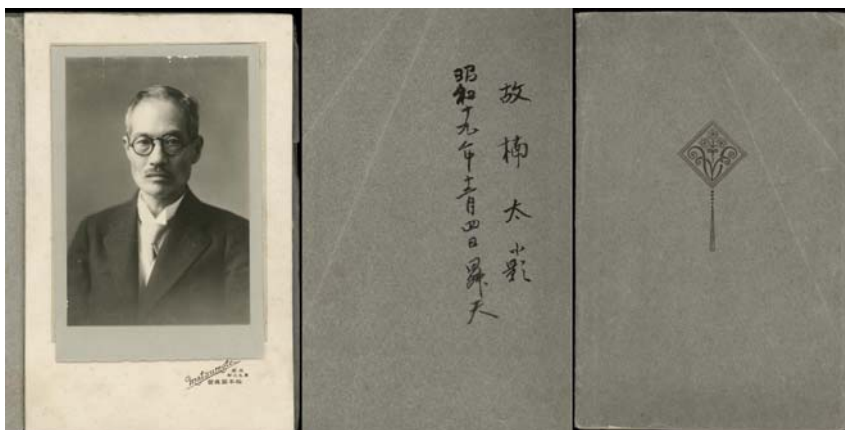 Matsumoto
故楠太小影
昭和十九年十二月四日昇天